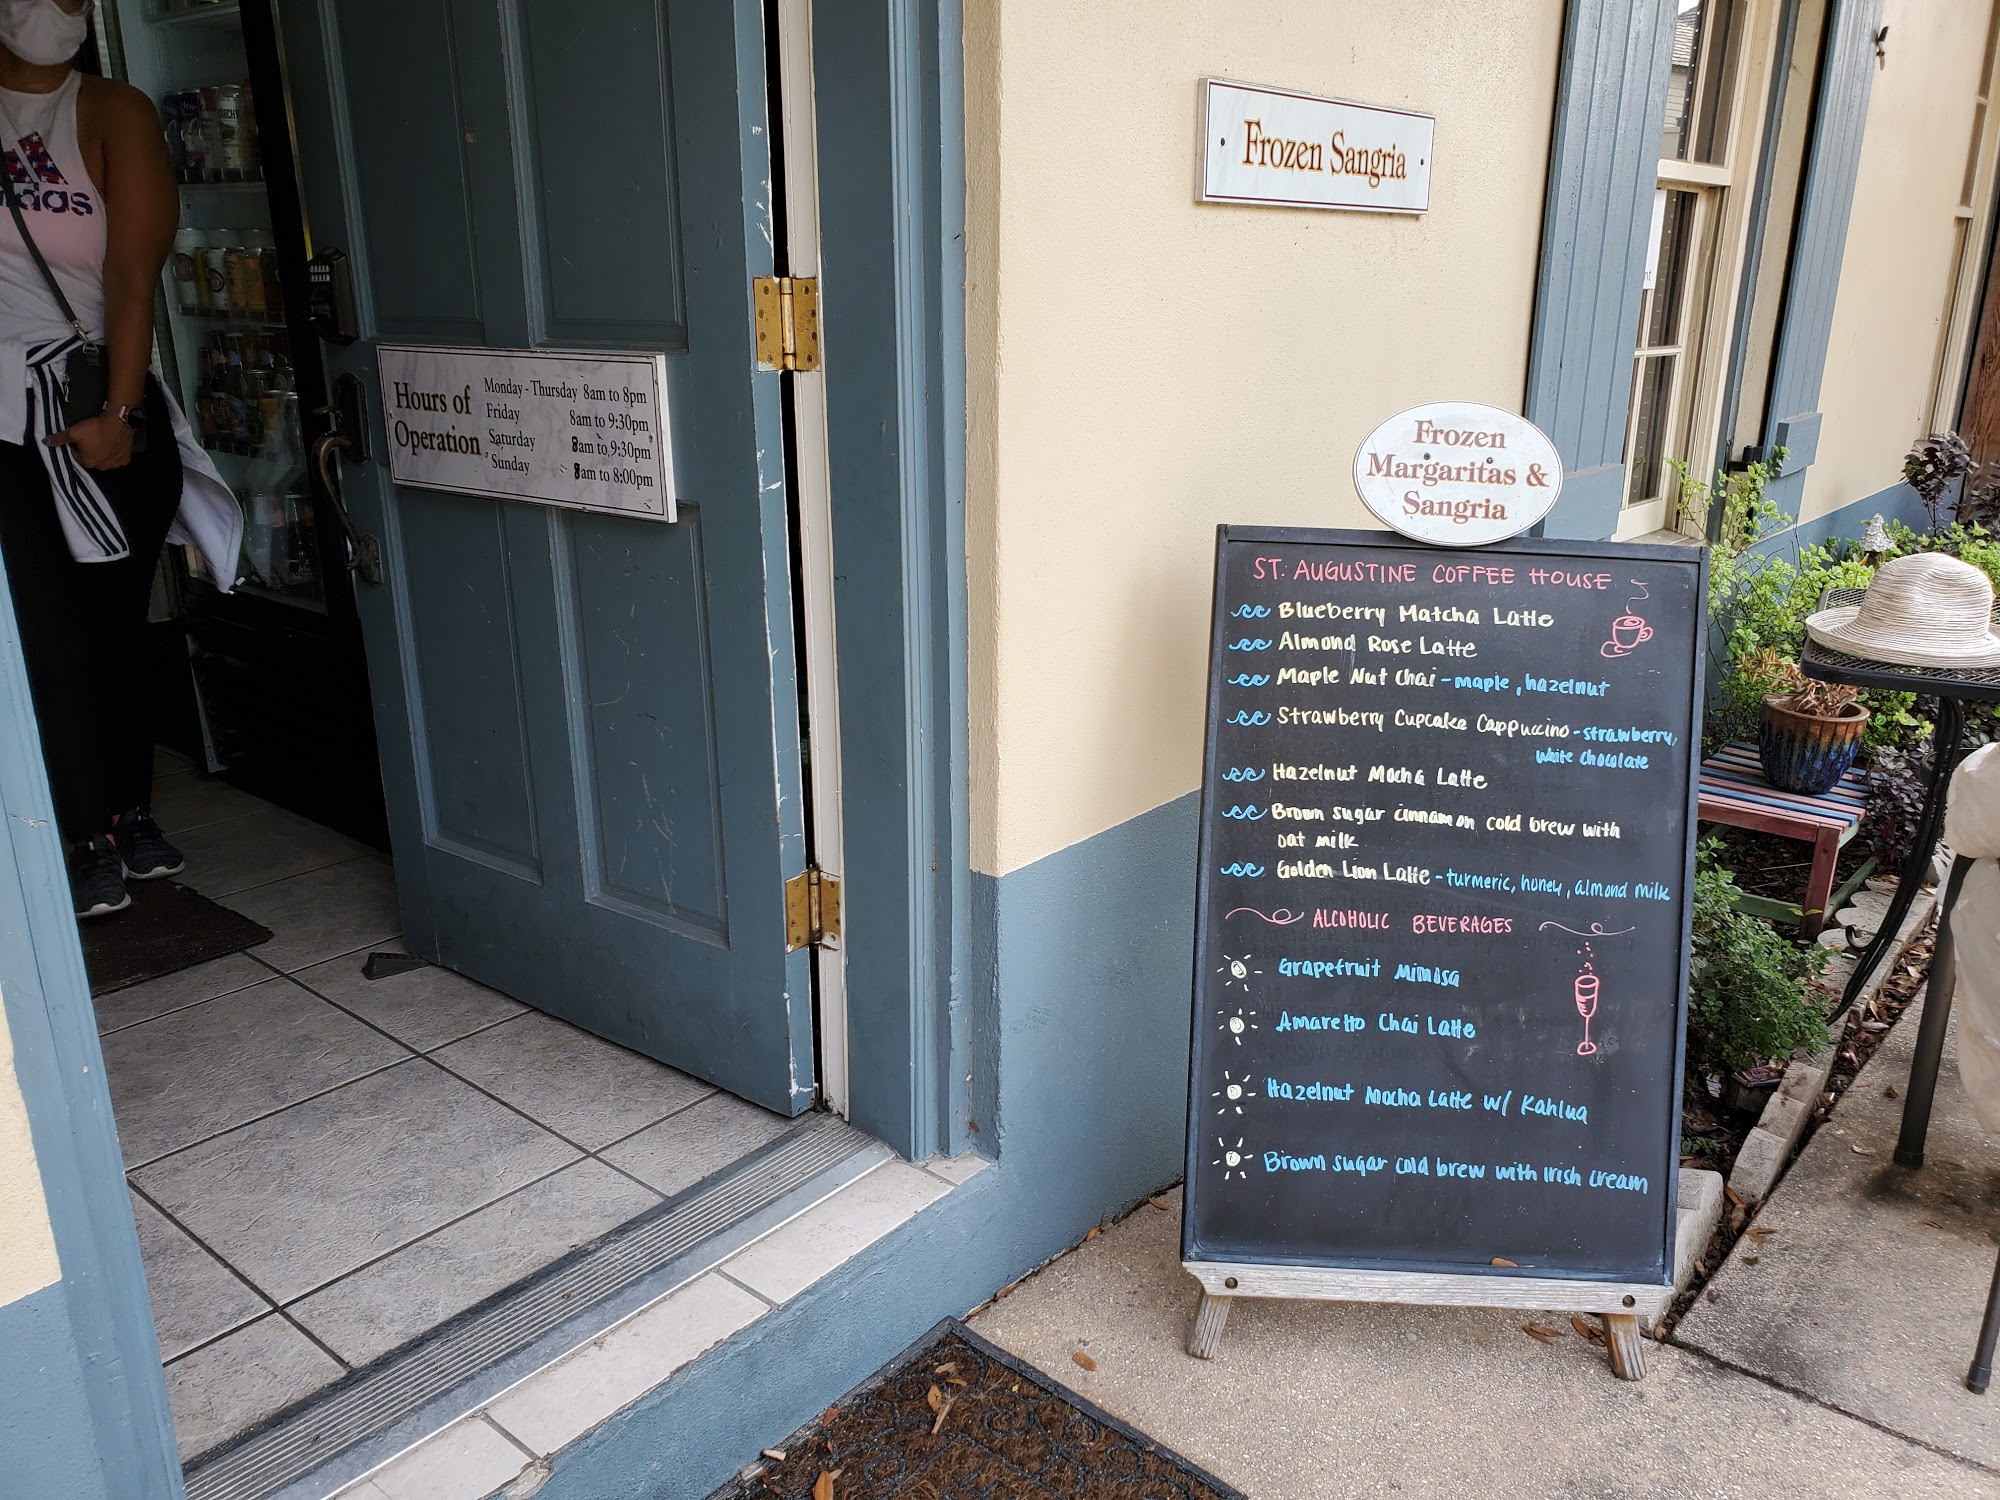 adidas
Hours of Operation
Monday - Thursday 8am to 8pm
Friday 8am to 9:30pm
Saturday 8am to 9:30pm
Sunday 8am to 8:00pm
Frozen Sangria
Frozen
Margaritas &
Sangria
ST. AUGUSTINE COFFEE HOUSE
Blueberry Matcha Latte
Almond Rose Latte
Maple Nut Chai - maple, hazelnut
Strawberry Cupcake Cappuccino - strawberry,
white chocolate
Hazelnut Mocha Latte
Brown sugar cinnamon cold brew with
oat milk
Golden Lion Latte - turmeric, honey, almond milk
ALCOHOLIC BEVERAGES
Grapefruit Mimosa
Amaretto Chai Latte
Hazelnut Mocha Latte w/ Kahlua
Brown sugar cold brew with Irish cream